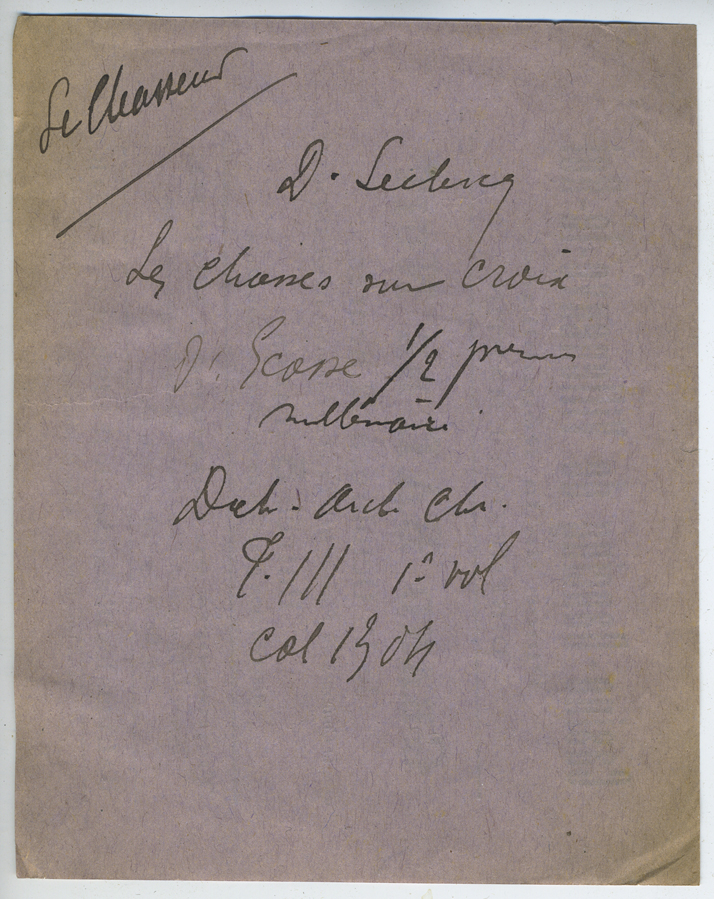 Le Chasseur
D. Leclercq
Les chasses sur croix
d'Ecosse 1/2 premier
millénaire
Dict. Arch. Chr.
T. III 1er vol
col 1304